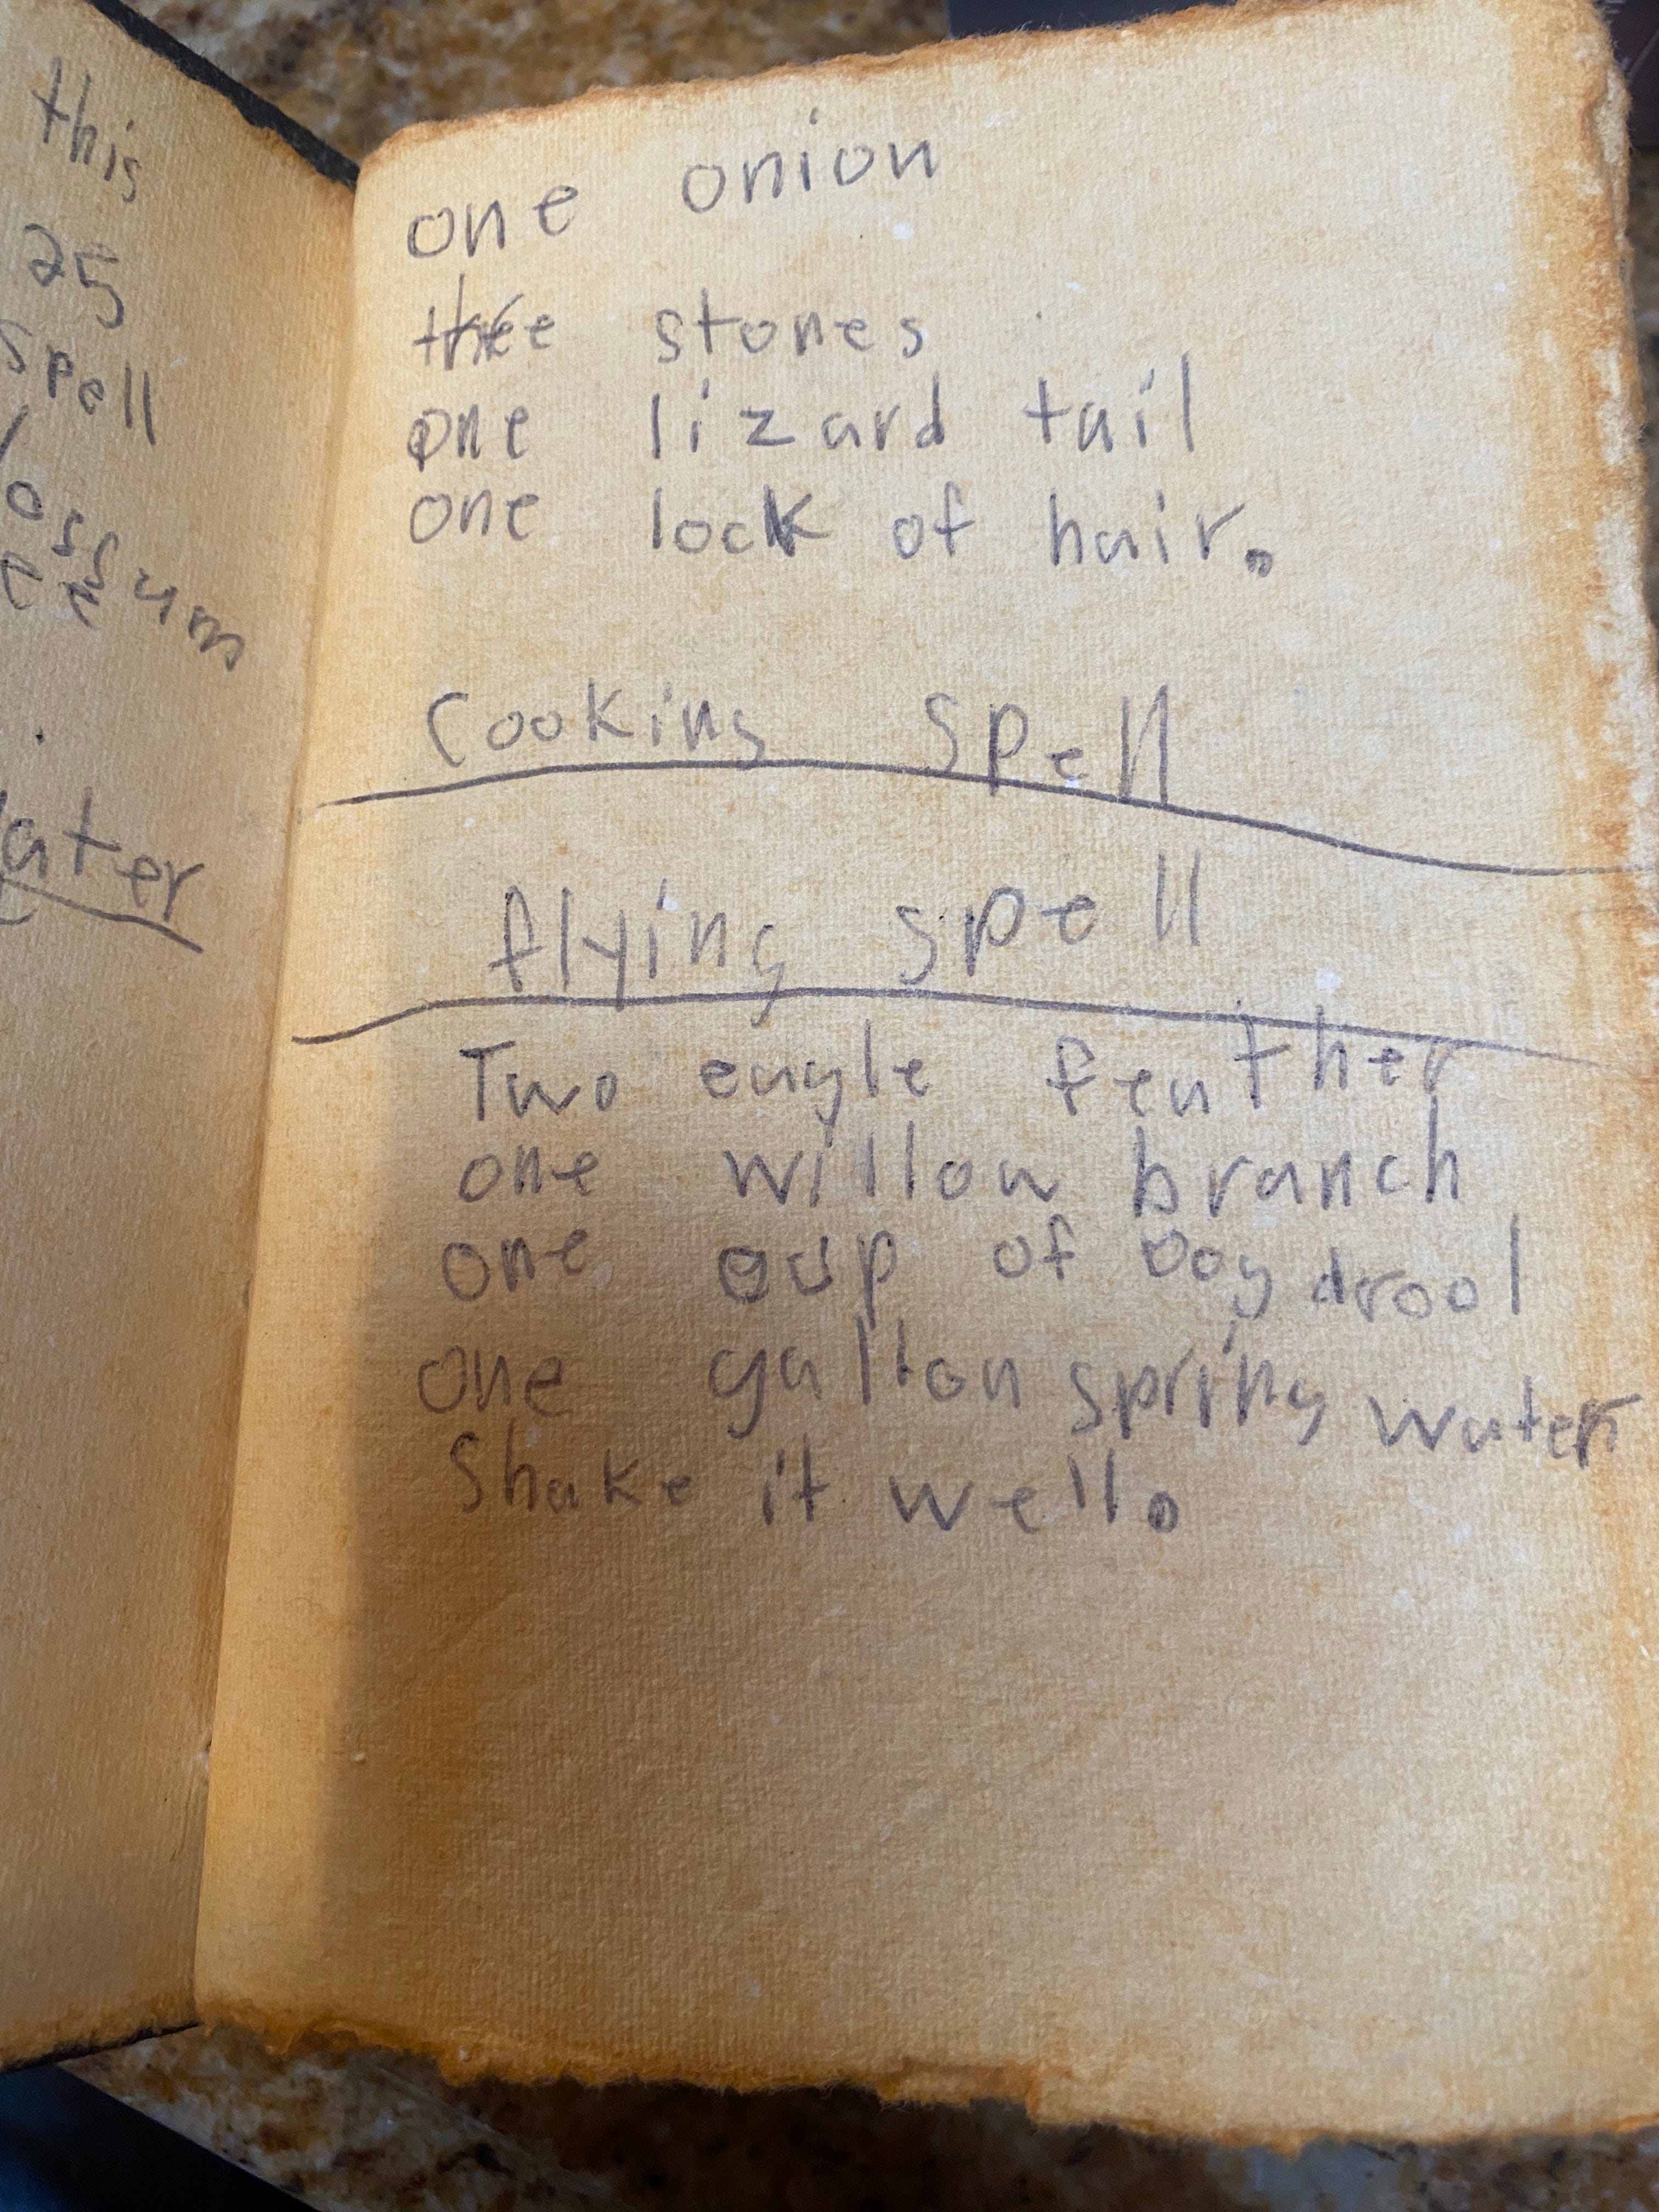 this
25
Spell
ossum
ater
one onion
three stones
one lizard tail
one lock of hair.
Cooking Spell
flying spell
Two eagle feather
one willow branch
one cup of Dog drool
one gallon spring water
Shake it well.